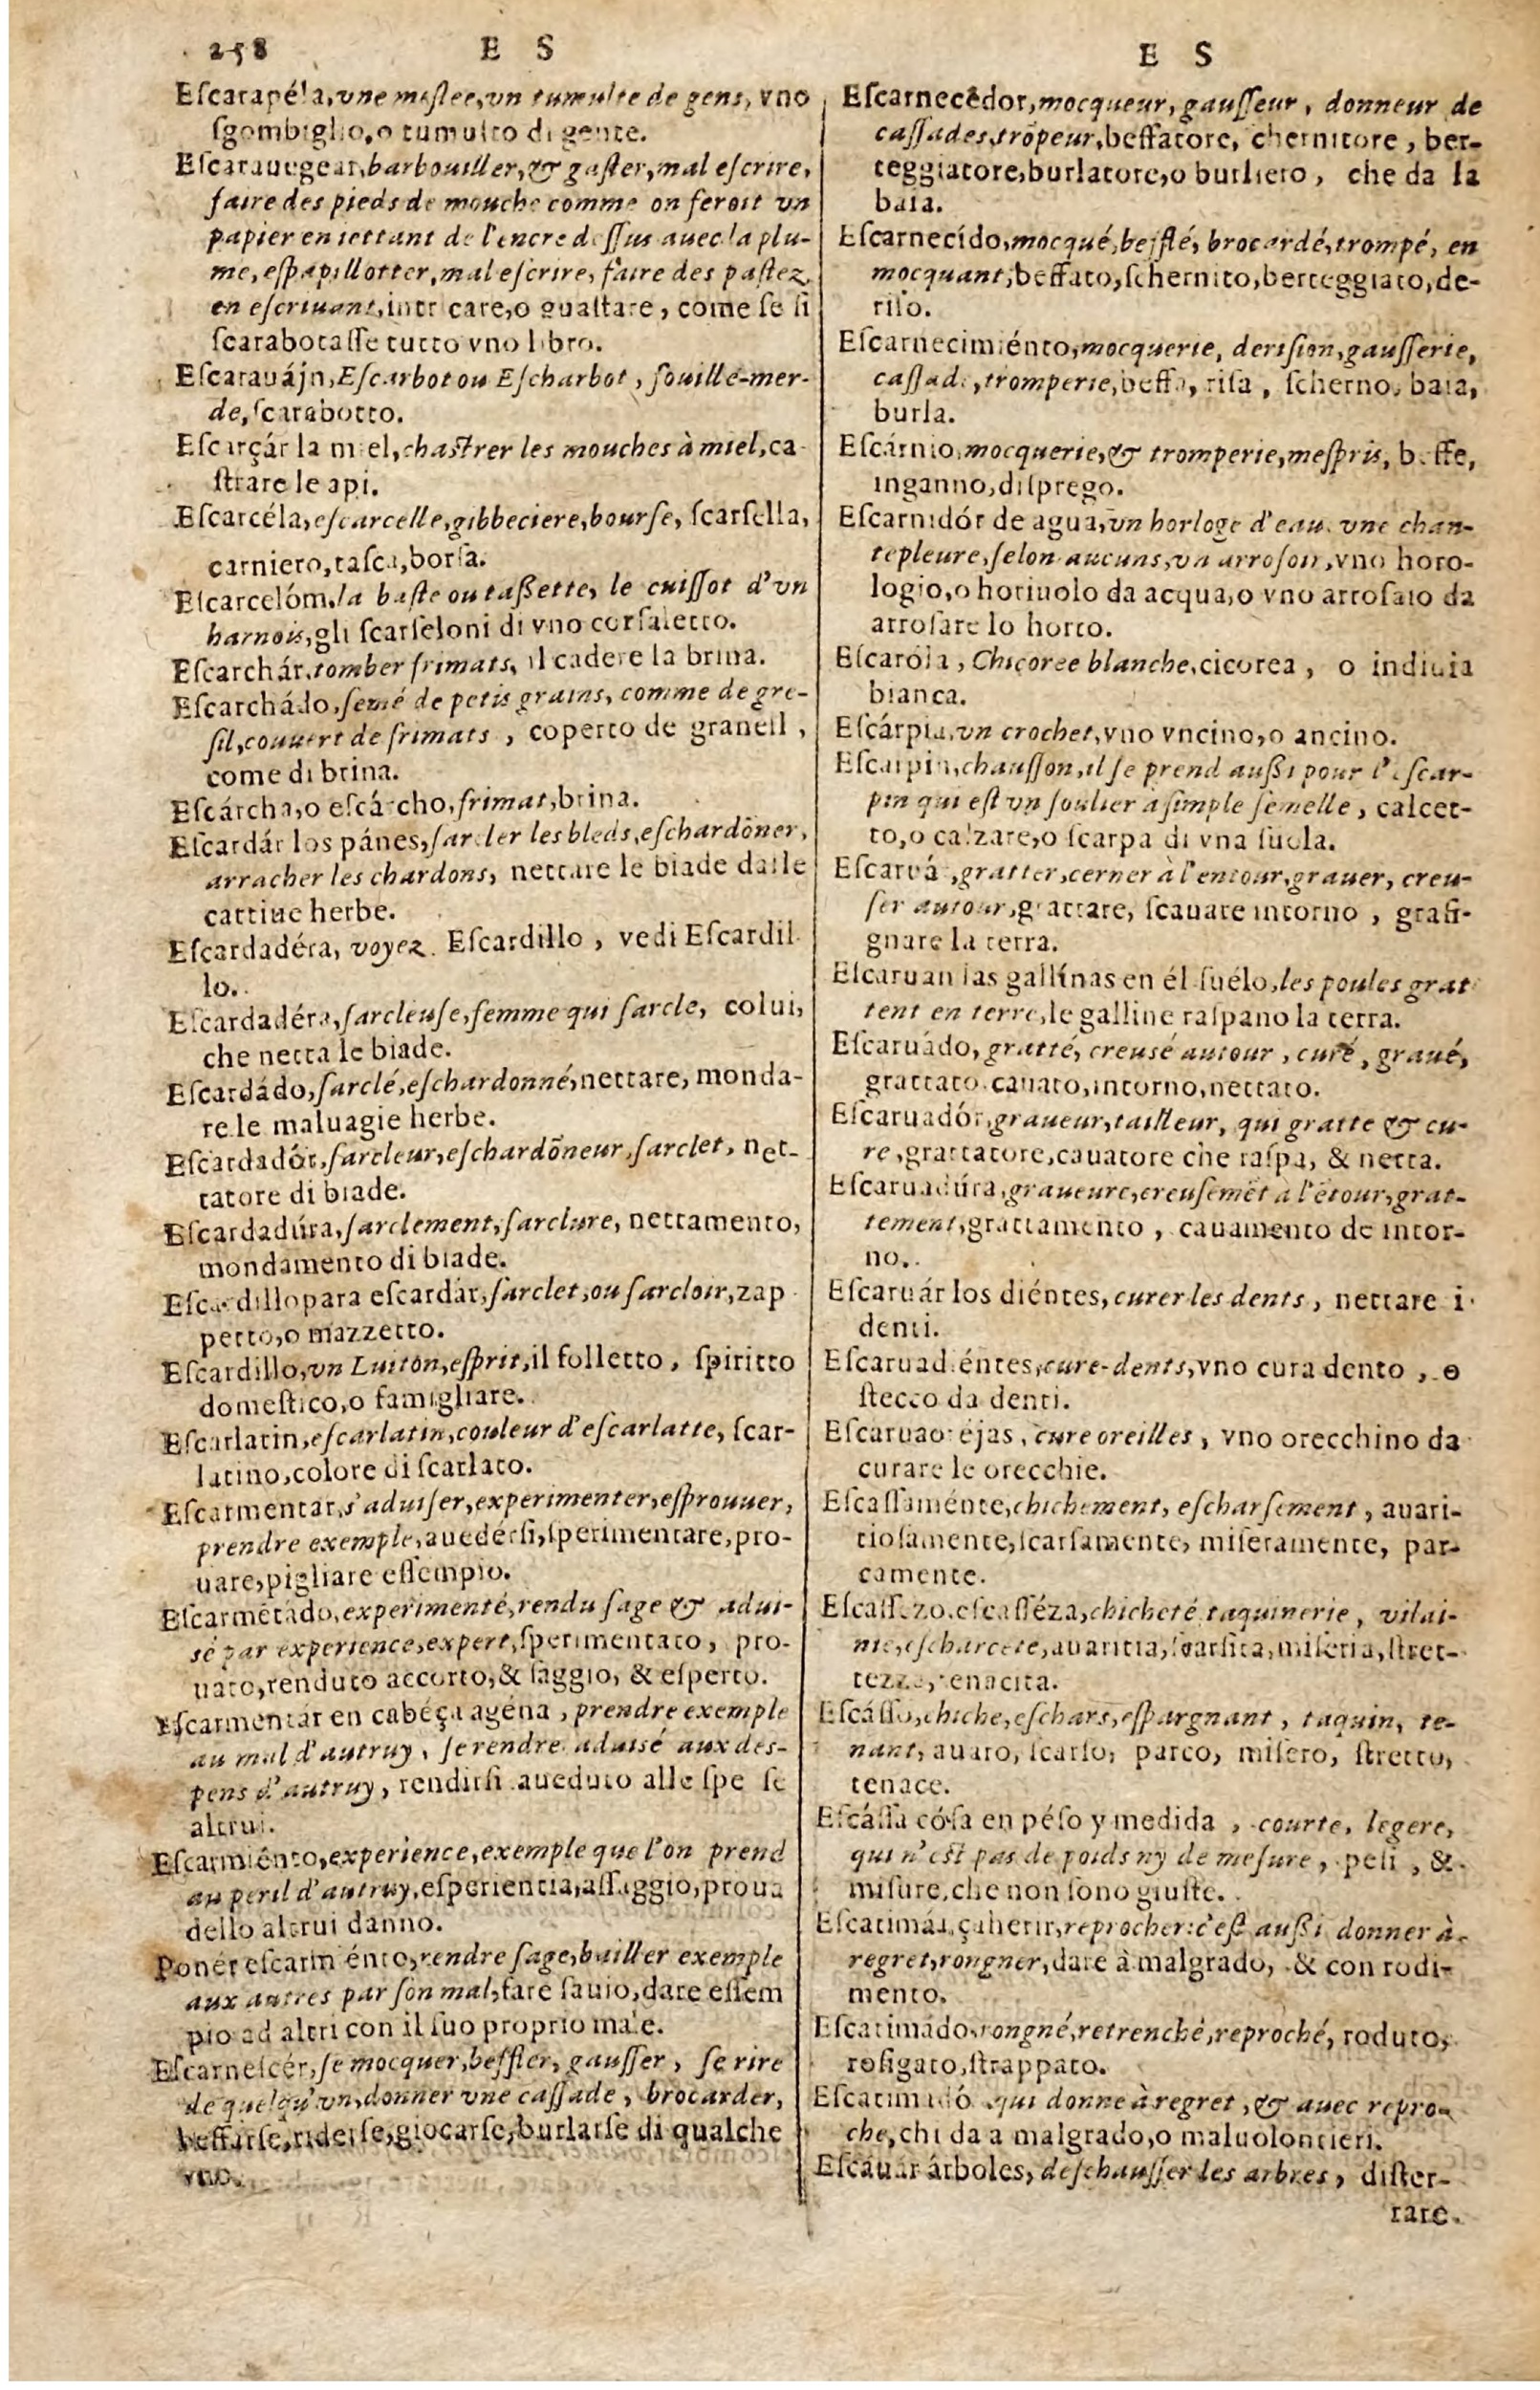 258 E S
Eſcarapéla, vne meſlee, vn tumulte de gens, vno
ſgombiglio, o tumulto di gente.
Eſcarauegear, barbouiller, & gaſter, mal eſcrire,
faire des pieds de mouche comme on feroit vn
papier en iettant de l'encre deſſus auec la plu-
me, eſpapillotter, mal eſcrire, faire des paſtez
en eſcriuant, intricare, o guaſtare, come ſe ſi
ſcarabotaſſe tutto vno libro.
Eſcarauájn, Eſcarbot ou Eſcharbot, ſouille-mer-
de, ſcarabotto.
Eſcarçár la miel, chaſtrer les mouches à miel, ca
ſtrare le api.
Eſcarcéla, eſcarcelle, gibbeciere, bourſe, ſcarſella,
carniero, taſca, borſa.
Eſcarcelóm, la baſte ou taßette, le cuiſſot d'vn
harnois, gli ſcarſeloni di vno corſaletto.
Eſcarchár, tomber frimats, il cadere la brina.
Eſcarchádo, ſemé de petis grains, comme de gre-
ſil, couuert de frimats, coperto de granell,
come di brina.
Eſcárcha, o eſcárcho, frimat, brina.
Eſcardár los pánes, ſarcler les bleds, eſchardõner,
arracher les chardons, nettare le biade dalle
cattiue herbe.
Eſcardadéra, voyez Eſcardillo, vedi Eſcardil
lo.
Eſcardadéra, ſarcleuſe, femme qui ſarcle, colui,
che netta le biade.
Eſcardádo, ſarclé, eſchardonné, nettare, monda-
re le maluagie herbe.
Eſcardadór, ſarcleur, eſchardõneur, ſarclet, net-
tatore di biade.
Eſcardadúra, ſarclement, ſarclure, nettamento,
mondamento di biade.
Eſcardillo para eſcardár, ſarclet, ou ſarcloir, zap
petto, o mazzetto.
Eſcardillo, vn Luitõn, eſprit, il folletto, ſpiritto
domeſtico, o famigliare.
Eſcarlatin, eſcarlatin, couleur d'eſcarlatte, ſcar-
latino, colore di ſcarlato.
Eſcarmentar, s'aduiſer, experimenter, eſprouuer,
prendre exemple, auedérſi, ſperimentare, pro-
uare, pigliare eſſempio.
Eſcarmẽtado, experimenté, rendu ſage & adui-
sé par experience, expert, ſperimentato, pro-
uato, renduto accorto, & ſaggio, & eſperto.
Eſcarmentár en cabéça agéna, prendre exemple
au mal d'autruy, ſe rendre aduisé aux des-
pens d'autruy, rendirſi aueduto alle ſpe ſe
altrui.
Eſcarmiénto, experience, exemple que l'on prend
au peril d'autruy, eſperientia, aſſaggio, proua
dello altrui danno.
Ponér eſcarmiénto, rendre ſage, bailler exemple
aux autres par ſon mal, fare ſauio, dare eſſem
pio ad altri con il ſuo proprio male.
Eſcarneſcér, ſe mocquer, beffler, gauſſer, ſe rire
de quelqu'vn, donner vne caſſade, brocarder,
beffarſe, riderſe, giocarſe, burlarſe di qualche
vno.
E S
Eſcarnecedor, mocqueur, gauſſeur, donneur de
caſſades, trõpeur, beffatore, chernitore, ber-
teggiatore, burlatore, o burliero, che da la
baia.
Eſcarnecído, mocqué, beifflé, brocardé, trompé, en
mocquant, beffato, ſchernito, berteggiato, de-
riſo.
Eſcarnecimiénto, mocquerie, deriſion, gauſſerie,
caſſade, tromperie, beffa, riſa, ſcherno, baia,
burla.
Eſcárnio, mocquerie, & tromperie, meſpris, beffe,
inganno, diſprego.
Eſcarnidór de agua, vn horloge d'eau, vne chan-
tepleure, ſelon aucuns, vn arroſoir, vno horo-
logio, o horiuolo da acqua, o vno arroſaio da
arroſare lo horto.
Eſcaróla, Chicoree blanche, cicorea, o indiuia
bianca.
Eſcárpia, vn crochet, vno vncino, o ancino.
Eſcarpin, chauſſon, il ſe prend außi pour l'eſcar-
pin qui eſt vn ſoulier à ſimple ſemelle, calcet-
to, o calzare, o ſcarpa di vna ſuola.
Eſcarvá, gratter, cerner à l'entour, grauer, creu-
ſer autour, grattare, ſcauare intorno, grafi-
gnare la terra.
Eſcaruan las gallínas en él ſuélo, les poules grat
tent en terre, le galline raſpano la terra.
Eſcaruádo, gratté, creusé autour, curé, graué,
grattato, cauato, intorno, nettato.
Eſcaruadór, graueur, tailleur, qui gratte & cu-
re, grattatore, cauatore che raſpa, & netta.
Eſcaruadúra, graueure, creuſemẽt à l'ẽtour, grat-
tement, grattamento, cauamento de intor-
no.
Eſcaruár los diéntes, curer les dents, nettare i
denti.
Eſcaruadiéntes, cure-dents, vno cura dento, o
ſtecco da denti.
Eſcaruaoréjas, cure oreilles, vno orecchino da
curare le orecchie.
Eſcaſſaménte, chichement, eſcharſement, auari-
tioſamente, ſcarſamente, miſeramente, par-
camente.
Eſcaſſezo, eſcaſſéza, chicheté, taquinerie, vilai-
nie, eſcharceté, auaritia, ſcarſita, miſeria, ſtret-
tezza, tenacita.
Eſcáſſo, chiche, eſchars, eſpargnant, taquin, te-
nant, auaro, ſcarſo, parco, miſero, ſtretto,
tenace.
Eſcáſſa cóſa en péſo y medida, courte, legere,
qui n'eſt pas de poids ny de meſure, peſi, &
miſure, che non ſono giuſte.
Eſcatimár, çaherir, reprocher: c'eſt außi donner à
regret, rongner, dare à malgrado, & con rodi-
mento.
Eſcatimádo, rongné, retrenché, reproché, roduto,
roſigato, ſtrappato.
Eſcatimadó, qui donne à regret, & auec repro-
che, chi da a malgrado, o maluolontieri.
Eſcauár árboles, deſchauſſer les arbres, diſter-
rare.